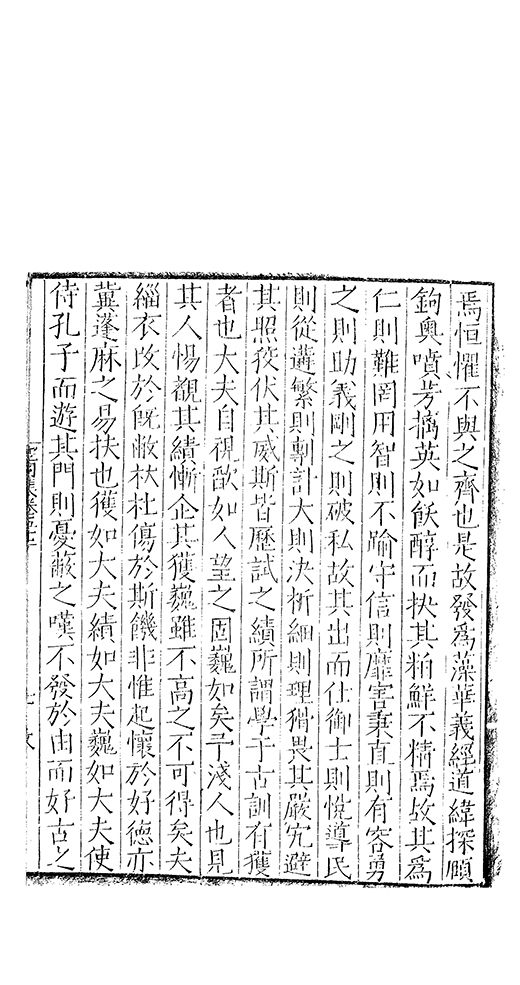 焉恒懼不與之齊也是故發爲藻華義經道緯探頤
鉤奧噴芳擒英如飫醇而抉其粕鮮不精焉故其爲
仁則難罔用智則不踰守信則靡害秉直則有容勇
之則助義剛之則破私故其出而仕御士則悅導民
則從遘繁則剸計大則決析細則理猾畏其嚴宄避
其照役伏其威斯皆歷試之績所謂學于古訓有獲
者也大夫自視歉如人望之固巍如矣予淺人也見
其人惕觀其績慚企其獲巍雖不高之不可得矣夫
緇衣改於旣敝杕杜傷於斯饑非惟起懷於好德亦
冀蓬麻之易扶也獲如大夫績如大夫巍如大夫使
侍孔子而遊其門則憂蔽之嘆不發於由而好古之